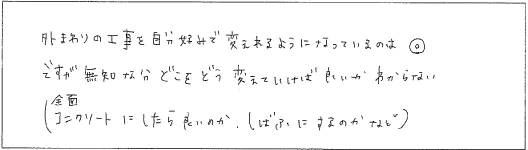 外まわりの工事を自分好みで変えれるようになっているのは ◎
ですが 無知な分 どこをどう 変えていけば良いか わからない
(全面
コンクリートにしたら良いのか、しばふにするのかなど)